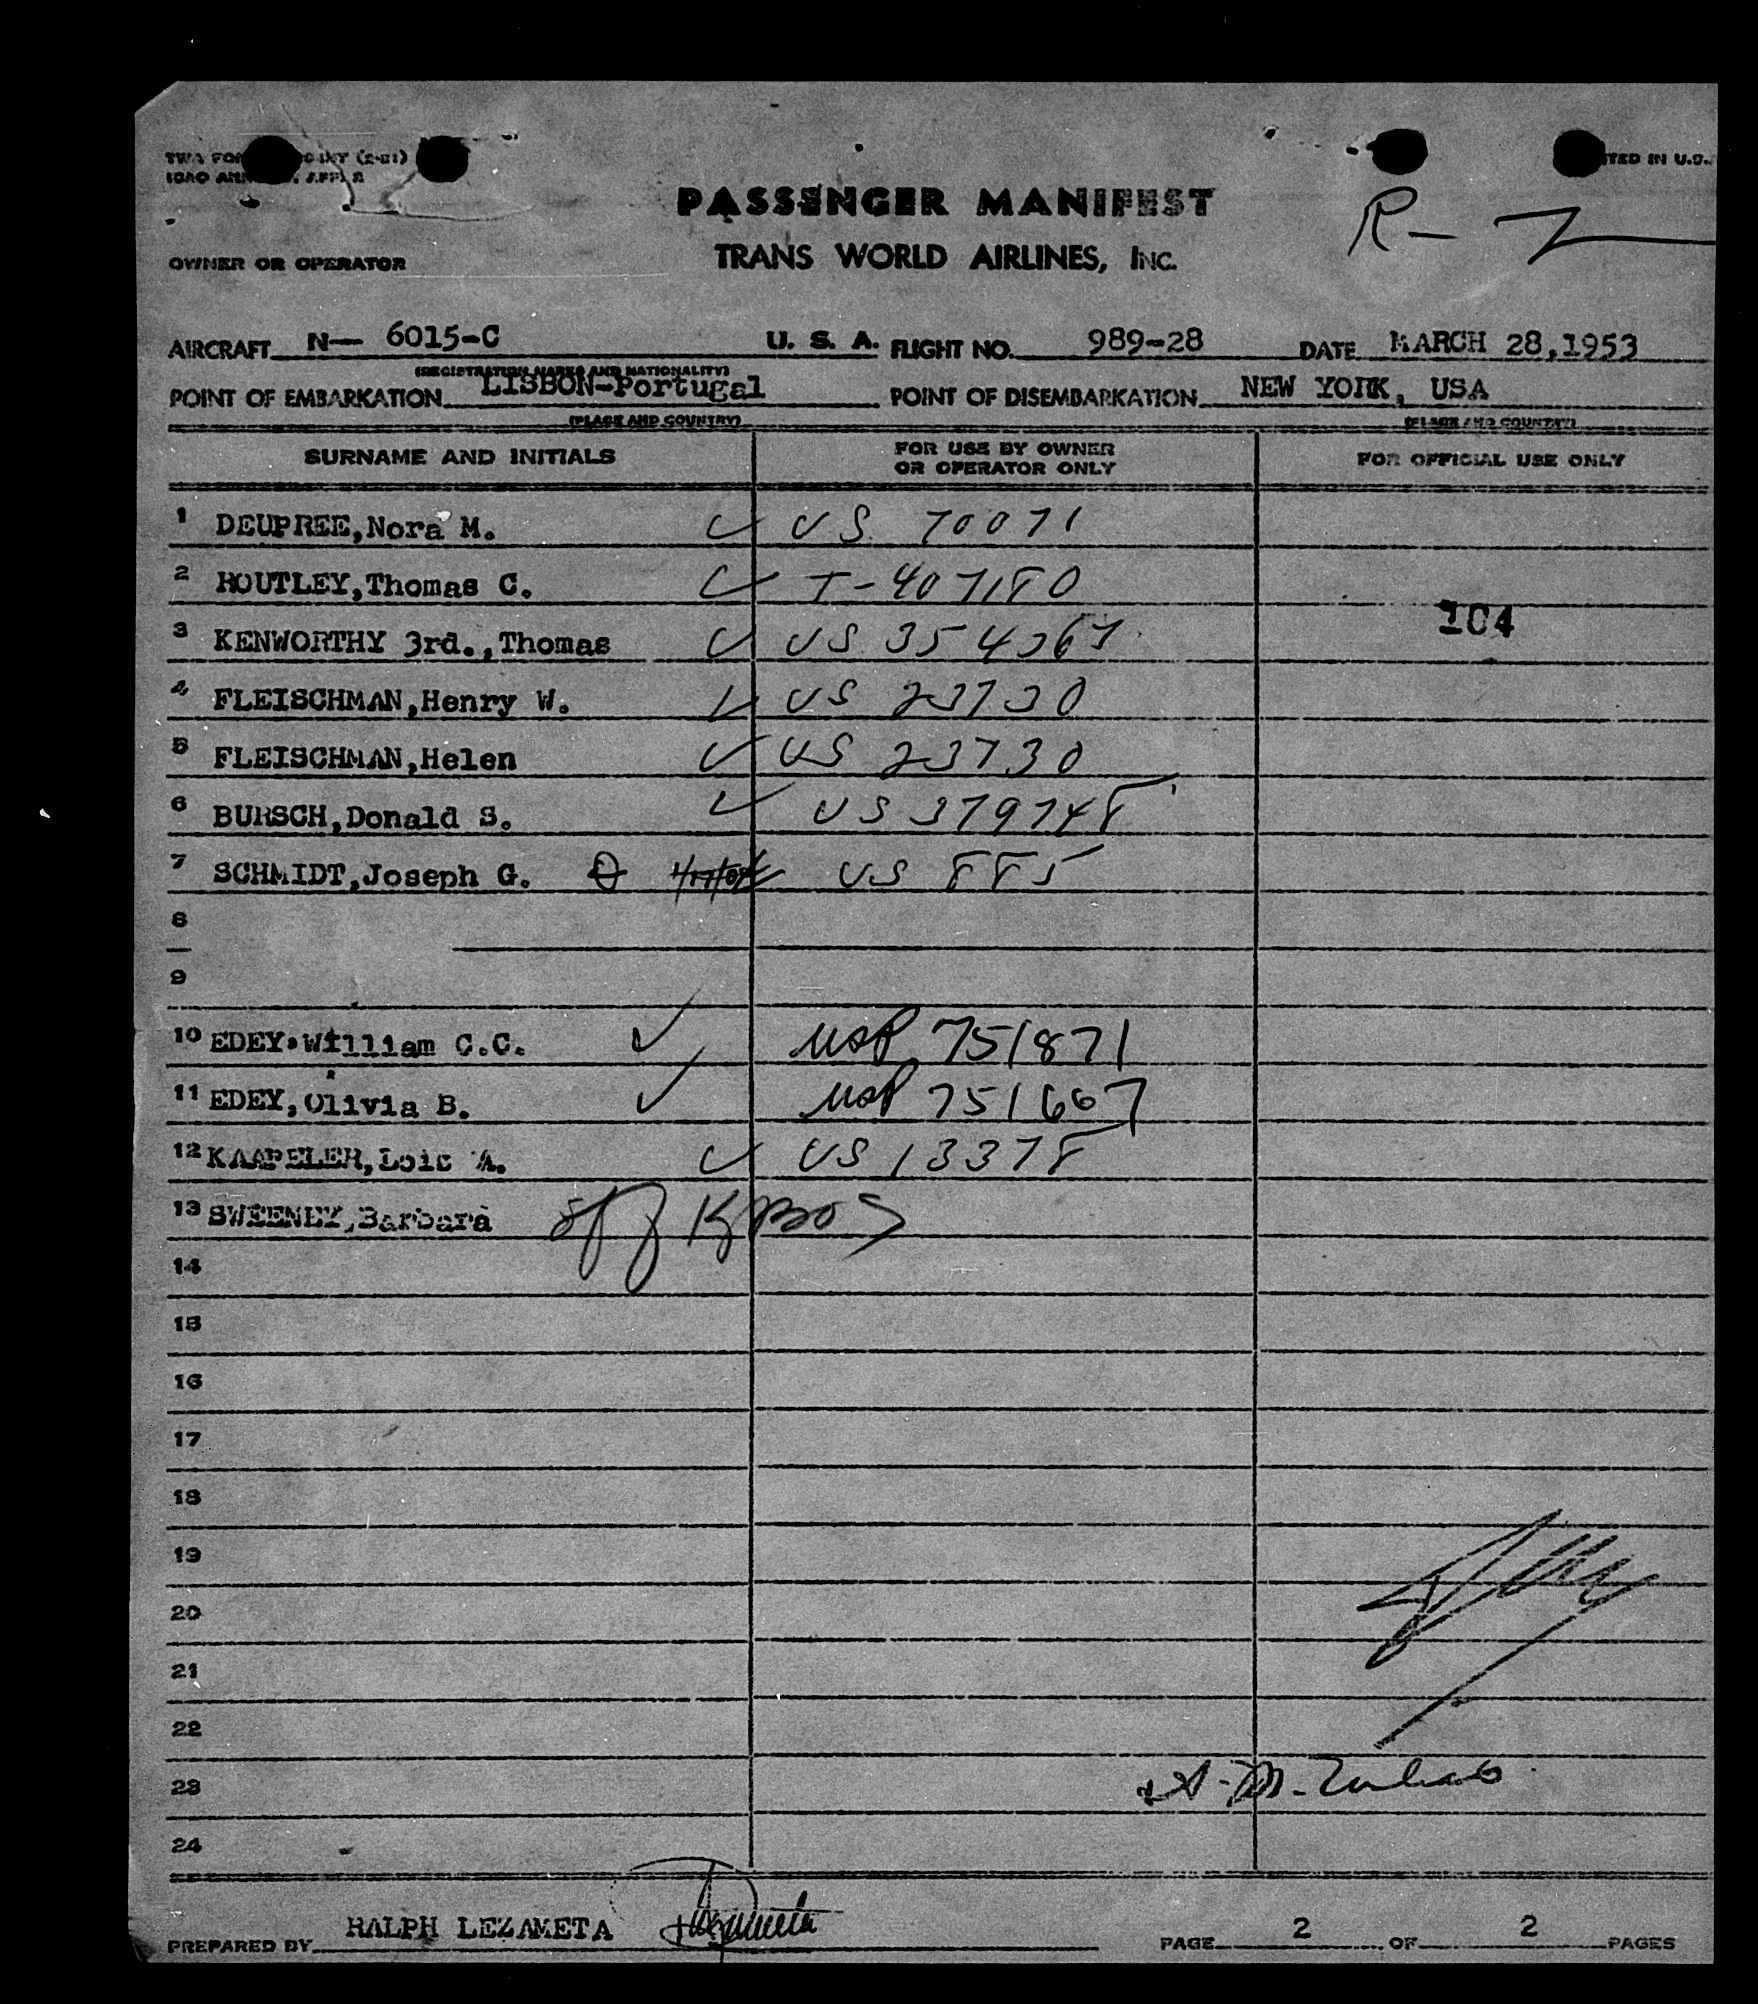 PASSENGER MANIFEST
R-
OWNER OR OPERATOR
TRANS WORLD AIRLINES, INC.
AIRCRAFT N— 6015-C U. S. A. FLIGHT NO. 989-28 DATE MARCH 28,1953
(REGISTRATION MARKS AND NATIONALITY)
POINT OF EMBARKATION LISBON-Portugal POINT OF DISEMBARKATION NEW YORK, USA
(PLACE AND COUNTRY) (PLACE AND COUNTRY)
SURNAME AND INITIALS FOR USE BY OWNER OR OPERATOR ONLY FOR OFFICIAL USE ONLY
1 DEUPREE,Nora M. US 70071
2 HOUTLEY,Thomas C. T-407180
104
3 KENWORTHY 3rd.,Thomas US 354367
4 FLEISCHMAN,Henry W. US 23730
5 FLEISCHMAN,Helen US 23730
6 BURSCH,Donald S. US 379748
7 SCHMIDT,Joseph G. US 885
8
9
10 EDEY,William C.C. USP 751871
11 EDEY,Olivia B. USP 751667
12 KAAPELER,Lois A. US 13378
13 SWEENEY,Barbara
14
15
16
17
18
19
20
21
22
23
24
PREPARED BY RALPH LEZAMETA PAGE 2 OF 2 PAGES